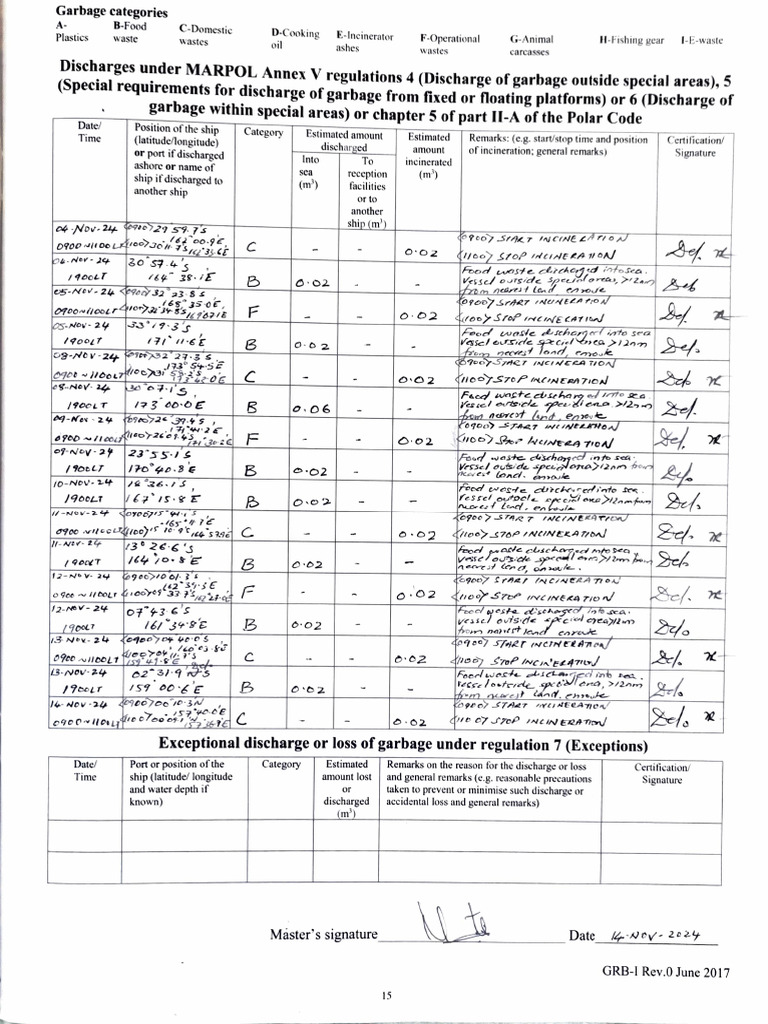 Garbage categories
A-Plastics B-Food waste C-Domestic wastes D-Cooking oil E-Incinerator ashes F-Operational wastes G-Animal carcasses H-Fishing gear I-E-waste
Discharges under MARPOL Annex V regulations 4 (Discharge of garbage outside special areas), 5
(Special requirements for discharge of garbage from fixed or floating platforms) or 6 (Discharge of
garbage within special areas) or chapter 5 of part II-A of the Polar Code
Date/ Time
Position of the ship (latitude/longitude) or port if discharged ashore or name of ship if discharged to another ship
Category
Estimated amount discharged
Into sea (m³)
To reception facilities or to another ship (m³)
Estimated amount incinerated (m³)
Remarks: (e.g. start/stop time and position of incineration; general remarks)
Certification/ Signature
04-Nov-24 (0900) 29°59.7'S 162°00.9'E (0900) START INCINERATION
0900~1100LT (1100) 30°11.7'S C - - 0.02 (1100) STOP INCINERATION
04-Nov-24 30°57.4'S Food waste discharged into sea.
1900LT 164°38.1E B 0.02 - - Vessel outside special areas, >12nm from nearest land, enroute
05-Nov-24 (0900) 32°23.8S 168°35.0E, (0900) START INCINERATION
0900~1100LT (1100) F - - 0.02 (1100) STOP INCINERATION
05-Nov-24 33°19.3'S Food waste discharged into sea
1900LT 171°11.6E B 0.02 - - Vessel outside special area >12nm from nearest land, enroute
08-Nov-24 (0900) 32°27.3'S 173°54.5E (0900) START INCINERATION
0900~1100LT (1100) C - - 0.02 (1100) STOP INCINERATION
08-Nov-24 30°07.1'S Food waste discharged into sea.
1900LT 173°00.0E B 0.06 - - Vessel outside special area >12nm from nearest land, enroute
09-Nov-24 (0900) 26°39.4S (0900) START INCINERATION
0900~1100LT (1100) F - - 0.02 (1100) STOP INCINERATION
09-Nov-24 23°55.1'S Food waste discharged into sea.
1900LT 170°40.8E B 0.02 - - Vessel outside special area >12nm from nearest land. enroute
10-Nov-24 18°36.1'S Food waste discharged into sea.
1900LT 167°15.8E B 0.02 - - Vessel outside special area >12nm from nearest land, enroute
11-Nov-24 (0900) 15°41.1'S 165°11.7'E (0900) START INCINERATION
0900~1100LT (1100) C - - 0.02 (1100) STOP INCINERATION
11-Nov-24 13°26.6'S Food waste discharged into sea
1900LT 164°10.8E B 0.02 - - Vessel outside special area >12nm from nearest land, enroute.
12-Nov-24 (0900) 10°01.3'S (0900) START INCINERATION
0900~1100LT (1100) F - - 0.02 (1100) STOP INCINERATION
12-Nov-24 07°43.6'S Food waste discharged into sea.
1900LT 161°34.8'E B 0.02 - - Vessel outside special area >12nm from nearest land enroute
13-Nov-24 (0900) 04°40.0'S 160°03.8E (0900) START INCINERATION
0900~1100LT (1100) C - - 0.02 (1100) STOP INCINERATION
13-Nov-24 02°31.9 S Food waste discharged into sea.
1900LT 159°00.6'E B 0.02 - - Vessel outside special area, >12nm from nearest land. enroute
14-Nov-24 (0900) 00°10.3N 157°40.0'E (0900) START INCINERATION
0900~1100LT (1100) C - - 0.02 (1100) STOP INCINERATION
Exceptional discharge or loss of garbage under regulation 7 (Exceptions)
Date/ Time
Port or position of the ship (latitude/ longitude and water depth if known)
Category
Estimated amount lost or discharged (m³)
Remarks on the reason for the discharge or loss and general remarks (e.g. reasonable precautions taken to prevent or minimise such discharge or accidental loss and general remarks)
Certification/ Signature
Master's signature Date 14-NOV-2024
GRB-I Rev.0 June 2017
15